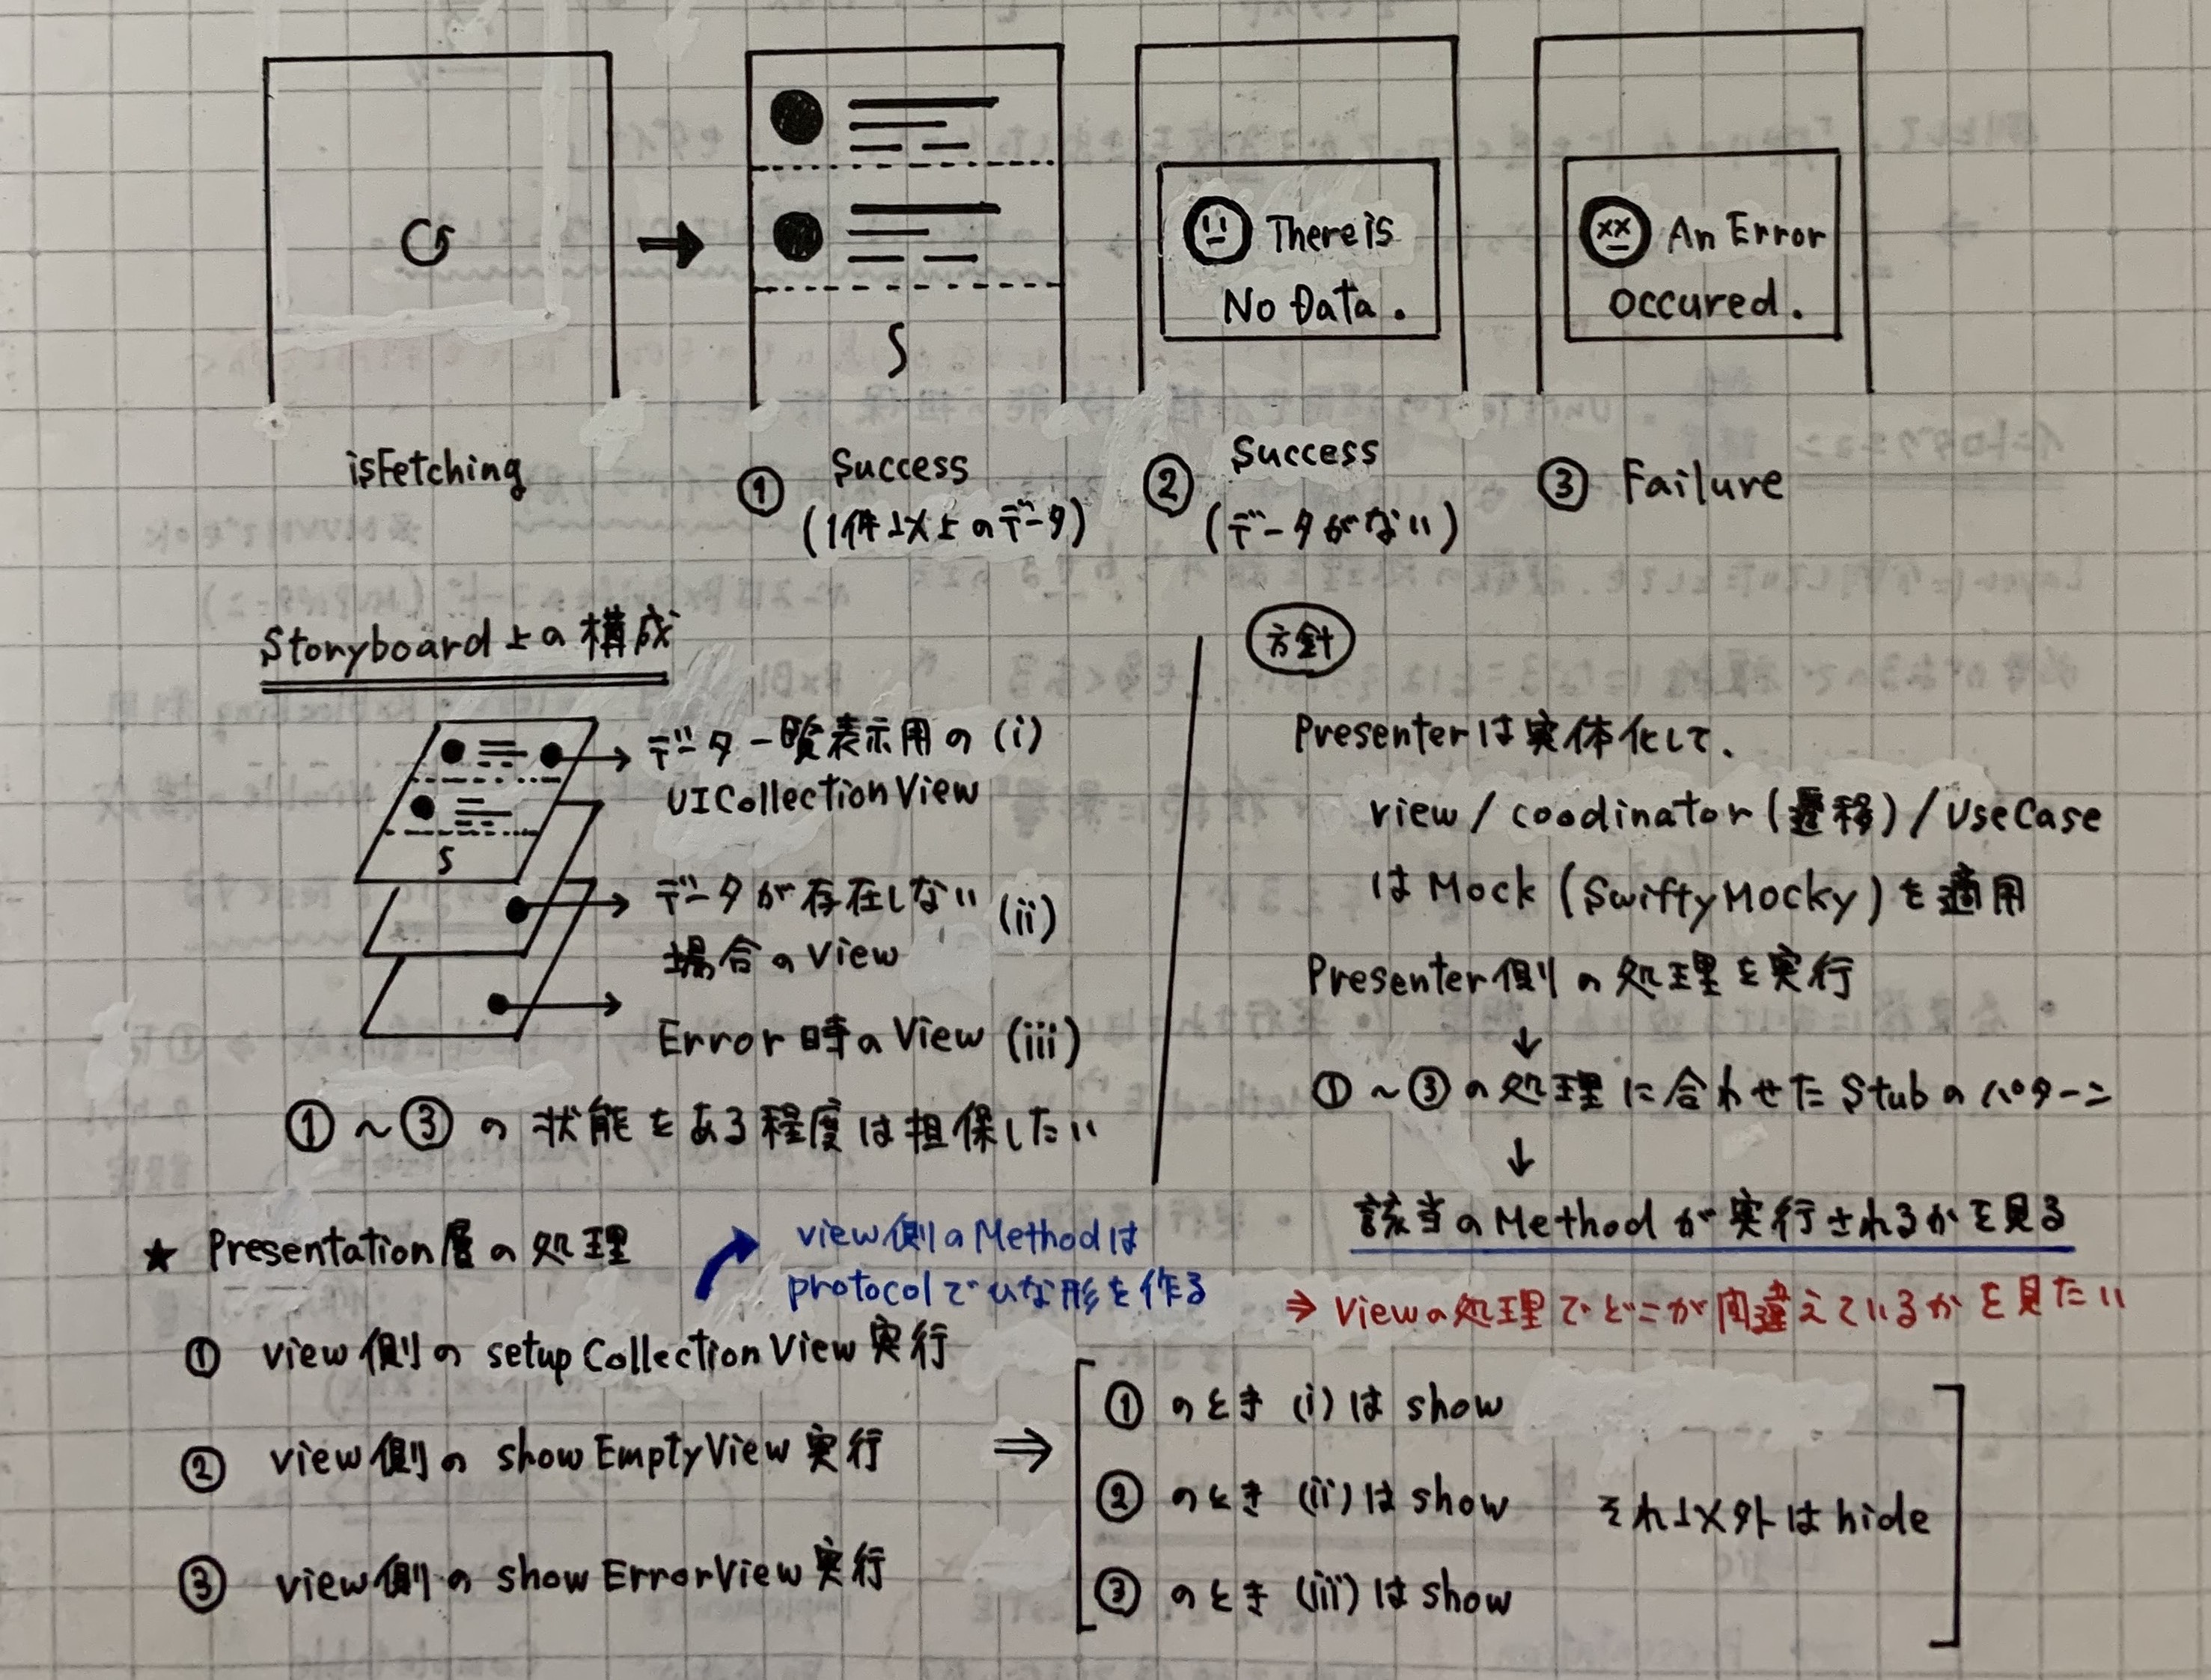 There is
No Data.
An Error
occured.
isFetching
① Success
(1件以上のデータ)
② Success
(データがない)
③ Failure
Storyboard上の構成
データ一覧表示用の (i)
UICollectionView
データが存在しない (ii)
場合のView
Error時のView (iii)
①～③の状態をある程度は担保したい
方針
Presenterは実体化して、
view/coodinator(遷移)/UseCase
はMock(SwiftyMocky)を適用
Presenter側の処理を実行
↓
①～③の処理に合わせたStubのパターン
↓
該当のMethodが実行されるかを見る
⇒ Viewの処理でどこが間違えているかを見たい
★ Presentation層の処理
view側のMethodは
protocolでひな形を作る
① view側の setupCollectionView実行
② view側の showEmptyView実行
③ view側の showErrorView実行
⇒
① のとき (i)は show
② のとき (ii)は show
③ のとき (iii)は show
それ以外は hide